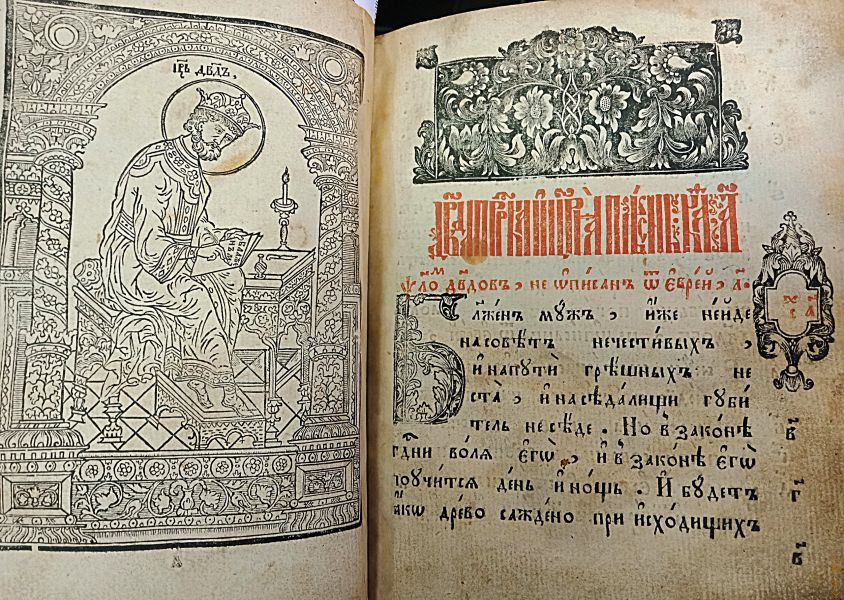 цр҃ь дв҃дъ,
ѱало́м дв҃довъ, не ѡ҆писан ѿ є҆вре́й, а҃.
Бл҃же́нъ мꙋ́жъ, и҆́же не́иде
на совѣ́тъ нечести́выхъ,
и҆ на пꙋтѝ грѣ́шныхъ не
ста̀, и҆ на сѣда́лищи гꙋби́
тель не сѣ́де. Но в̾ зако́нѣ
гд҇ни во́лѧ є҆гѡ̀, и҆ в̾ зако́нѣ є҆гѡ̀
поꙋчи́тсѧ де́нь и҆ но́щь. И҆ бꙋ́детъ
ꙗ҆́кѡ дре́во сажде́но при и҆схо́дищихъ
в҃
г҃